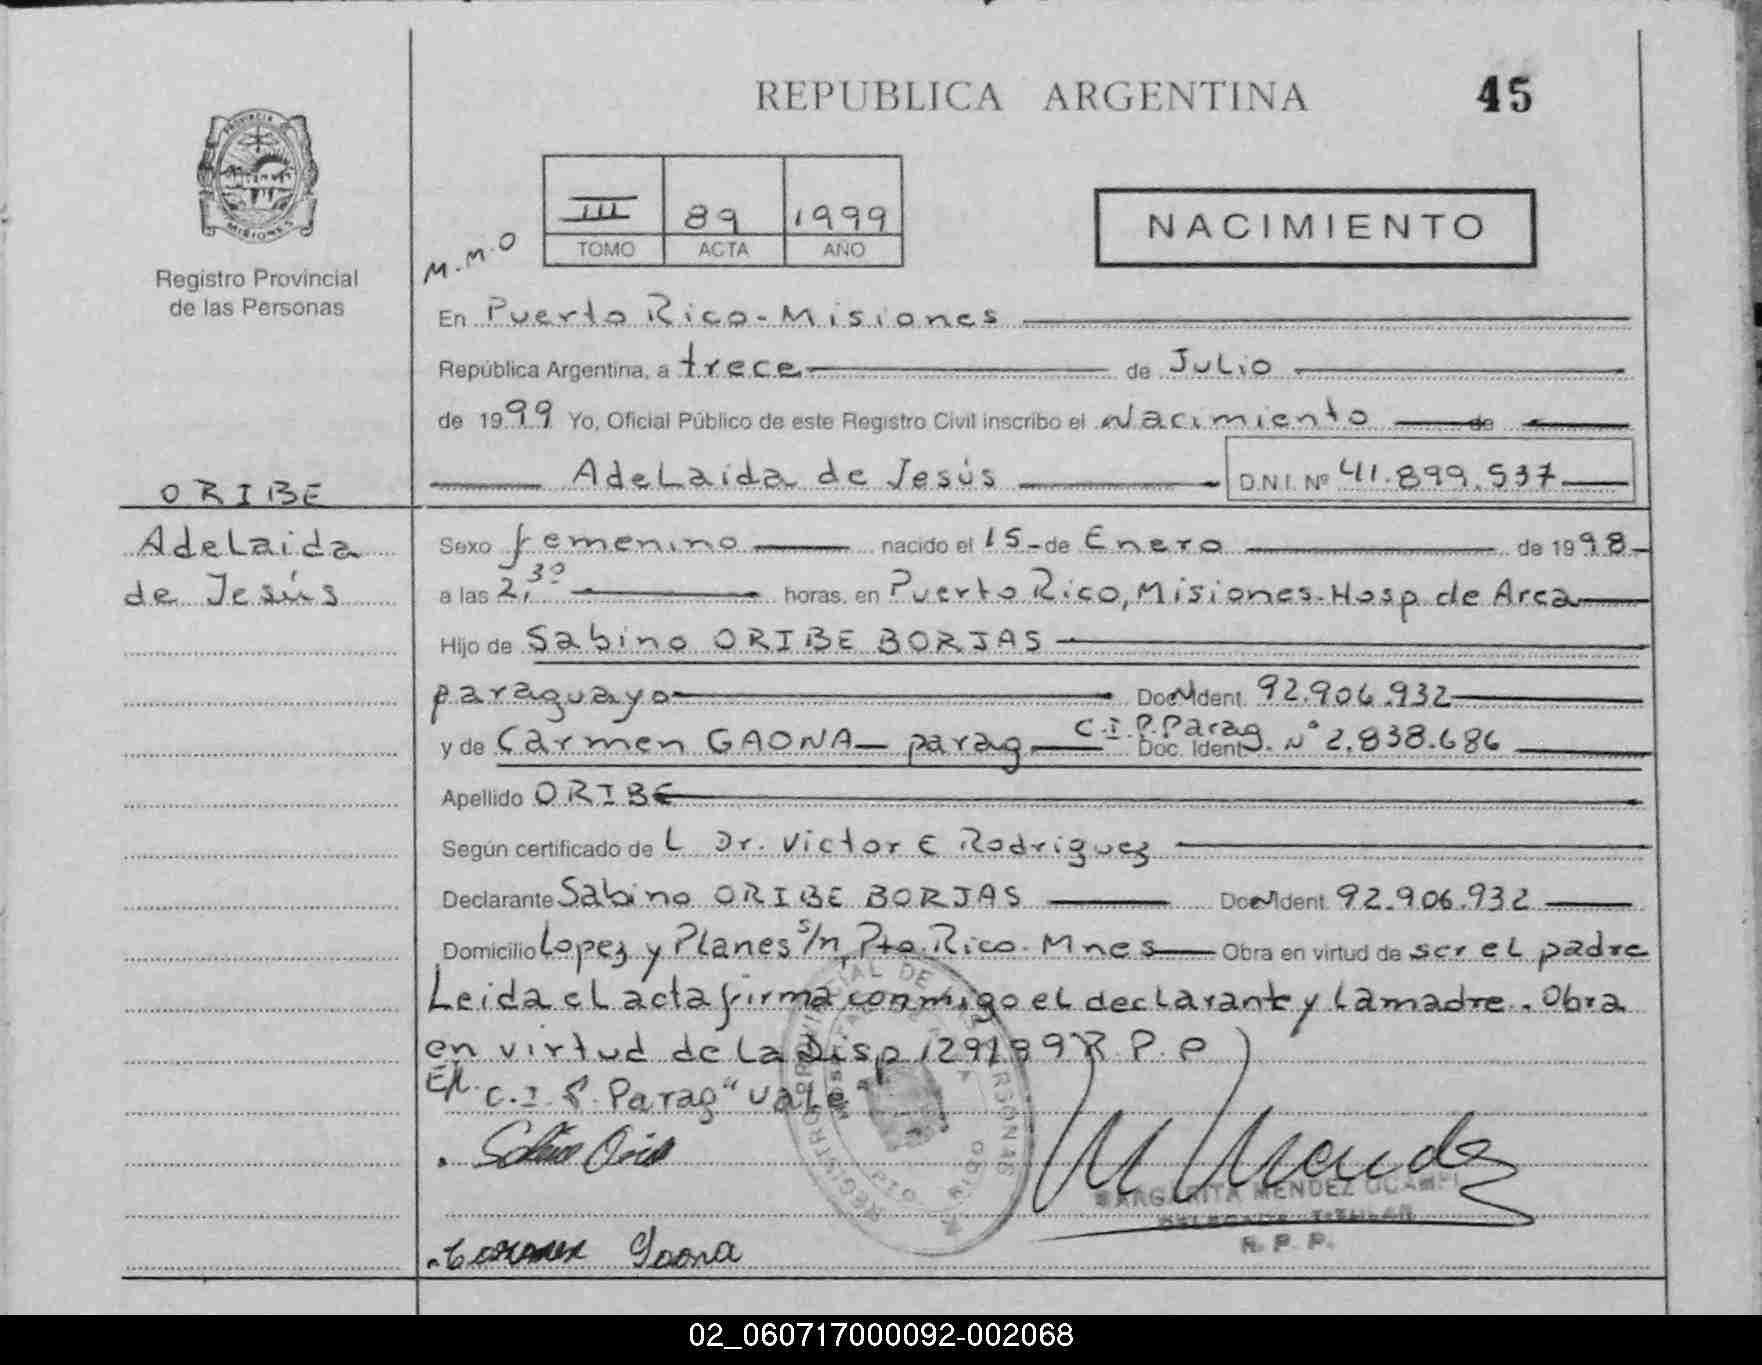 REPUBLICA ARGENTINA 45
PROVINCIA DE
MISIONES
Registro Provincial
de las Personas
III 89 1999
TOMO ACTA AÑO
NACIMIENTO
M.M.O
En Puerto Rico - Misiones
República Argentina, a trece de Julio
de 1999 Yo, Oficial Público de este Registro Civil inscribo el Nacimiento de
Adelaida de Jesús D.N.I. Nº 41.899.537
ORIBE
Adelaida
de Jesús
Sexo femenino nacido el 15 - de Enero de 1998
a las 2,30 horas, en Puerto Rico, Misiones - Hosp de Area
Hijo de Sabino ORIBE BORJAS
paraguayo Doc. Ident. 92.906.932
y de Carmen GAONA - parag C.I.P. Parag. Doc. Ident. Nº 2.838.686
Apellido ORIBE
Según certificado de L Dr. Victor E Rodriguez
Declarante Sabino ORIBE BORJAS Doc. Ident. 92.906.932
Domicilio Lopez y Planes s/n, Pto. Rico. Mnes Obra en virtud de ser el padre
Leida el acta firma conmigo el declarante y la madre. Obra
en virtud de la Disp 129/99 R.P.P
El. C.I.P. Parag "vale"
REGISTRO PROVINCIAL DE LAS PERSONAS
Carmen Gaona
MARGARITA MENDEZ OCAMPO
DELEGADA TITULAR
R. P. P.
02_060717000092-002068